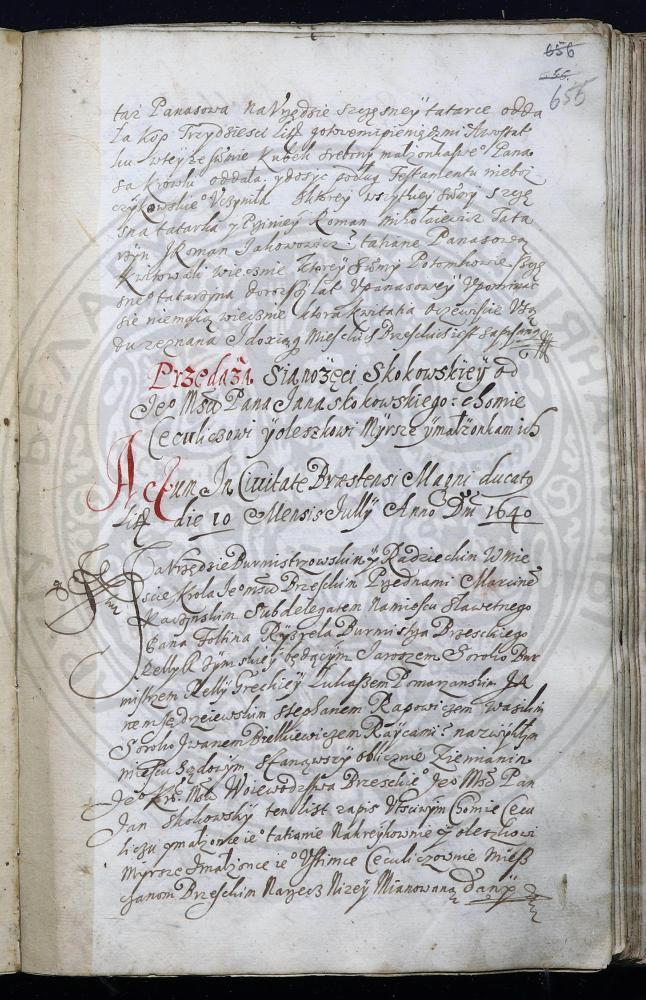 656
655
taż Panasowa na Vrzędzie szczęsney tatarce odda
ła kop Trzydziesci Lit. gotowemi pieniędzmi
ku wteyże sumie Kubek srebrny małżonka swe° Pana
sa Krowlu oddała ydosyc podług Testamentu nieboz
czykowskie° Vczyniła Ktorey wszytkiey sumy szczę
sna tatarka y Roman Mikołaiewicz Tata
ryn Roman Jahowowicz tahane Panasową
Kwitowali wiecznie ktorey sumy Potomkowie szczę
sne° tatarzyna dorozszy lat Vpanasowey Vpominac
sie niemaią wiecznie ktora kwitatia oczewiscie Vrzę
du zeznana J do xiąg Mieskich Brzeskich iest zapisana
Przedaża sianożęci Skokowskiey od
Je° Mśći Pana Jana skokowskiego: chomie
Ceculiczowi y oleszkowi Myrsze y małżonkam ich
Actum In Ciuitate Bræstensi Magni ducatq
Litt die 10 Mensis Jullÿ Anno Dni 1640
Na Vrzędzie Burmistrzowskim y Radzieckim W mie
scie Krola Je° mśći Brzeskim Przednami Marcinē
Raczynskim Subdelegatem na miescu sławetnego
Pana foltina Rysrela Burmistrza Brzesckiego
Relly Rzymskiey będącym Jaroszem Soroko Bur
mistrzem Relly Greckiey Lukaszem Pomarzanskim JA
nem Jędrzeiewskim stephanem Rapowiczem wasilim
Soroko Jwanem Bielkiewiczem Raycami na zwykłym
mieyscu sądowym stanąwszy oblicznie Ziemianin
Je° Kro: Mśći Woiewodztwa Brzeskie° Je° Mśći Pan
Jan Skokowsky ten list zapis Vtściwym Chomie Cecu
liczu y małżonie ie° tatianie Nahreykownie y oleszkowi
Myrsze y małżonce ie° Vstimce Ceculiczownie Miesz
czanom Brzeskim Narzecz Nizey Mianowaną dany